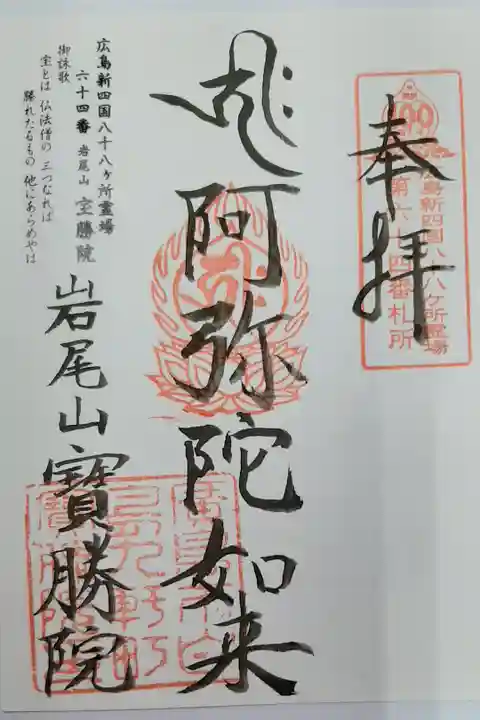 奉拝
広島新四国八十八ヶ所霊場
第六十四番札所
阿弥陀如来
岩尾山寳勝院
広島新四国八十八ヶ所霊場
六十四番 岩尾山 宝勝院
御詠歌
宝とは 仏法僧の 三つなれば
勝れたるもの 他にあらめやは